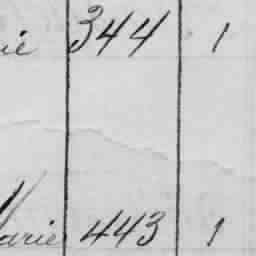 ie 344 1
Marie 443 1